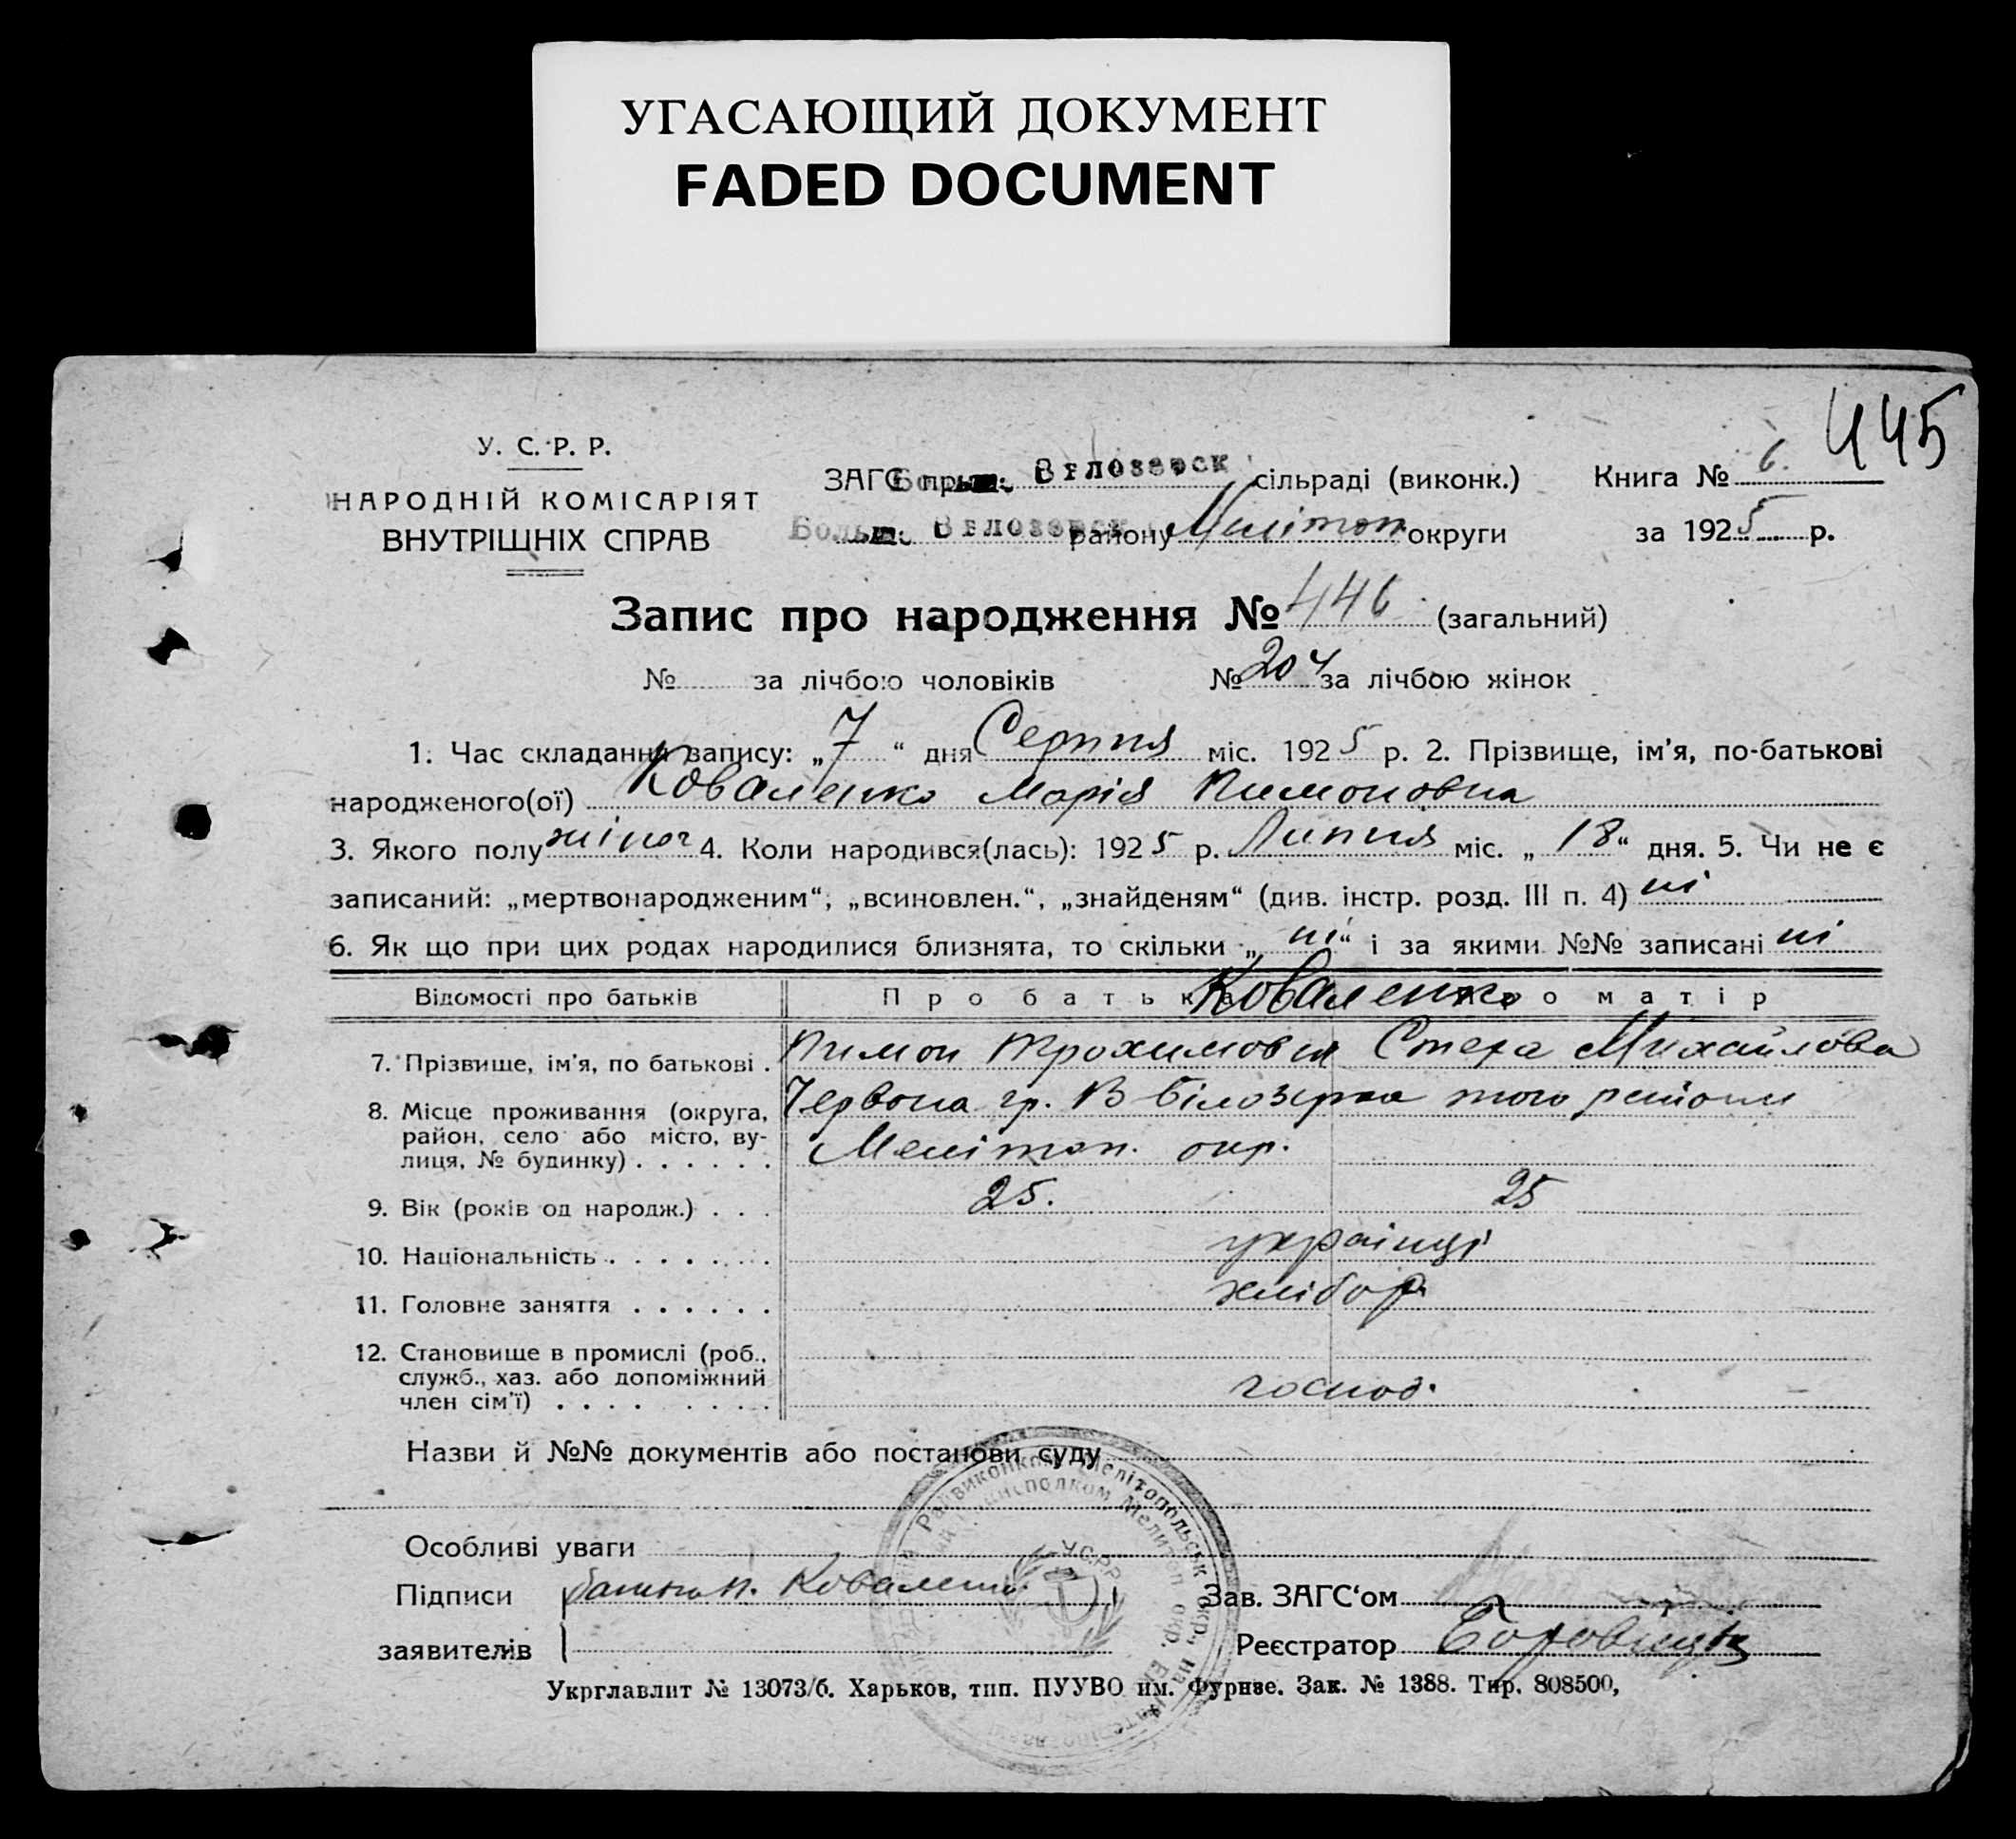 УГАСАЮЩИЙ ДОКУМЕНТ
FADED DOCUMENT
445
У. С. Р. Р.
НАРОДНІЙ КОМІСАРІЯТ
ВНУТРІШНІХ СПРАВ
ЗАГС при Вѣлозерск. сільраді (виконк.)
Больш. Вѣлозерск. району Мелітоп округи
Книга № 6.
за 1925 р.
Запис про народження № 446 (загальний)
№ за лічбою чоловіків № 204 за лічбою жінок
1. Час складання запису: „7“ дня Серпня міс. 1925 р. 2. Прізвище, ім'я, по-батькові
народженого(ої) Коваленко Марія Пимоновна
3. Якого полу жіноч 4. Коли народився(лась): 1925 р. Липня міс. „18“ дня. 5. Чи не є
записаний: „мертвонародженим“, „всиновлен.“, „знайденям“ (див. інстр. розд. III п. 4) ні
6. Як що при цих родах народилися близнята, то скільки „ні“ і за якими №№ записані ні
Відомості про батьків Про батька Про матір
Коваленко
7. Прізвище, ім'я, по батькові . Пимон Трохимович Стеха Михайлова
8. Місце проживання (округа, район, село або місто, ву-лиця, № будинку) . . . . . . Червона гр. В Білозірка того району
Мелітоп. окр.
9. Вік (років од народж.) . . . 25. 25
10. Національність . . . . . . . українці
11. Головне заняття . . . . . . хлібор
12. Становище в промислі (роб., служб., хаз. або допоміжний член сім'ї) . . . . . . . . господ.
Назви й №№ документів або постанови суду
Райвиконком Мелітопольськ. окр., на
Мелитоп. окр.
УСРР
Особливі уваги
Підписи батько П. Коваленко Зав. ЗАГС‘ом
заявителів Реєстратор
Укрглавлит № 13073/б. Харьков, тип. ПУУВО им. Фрунзе. Зак. № 1388. Тир. 808500,